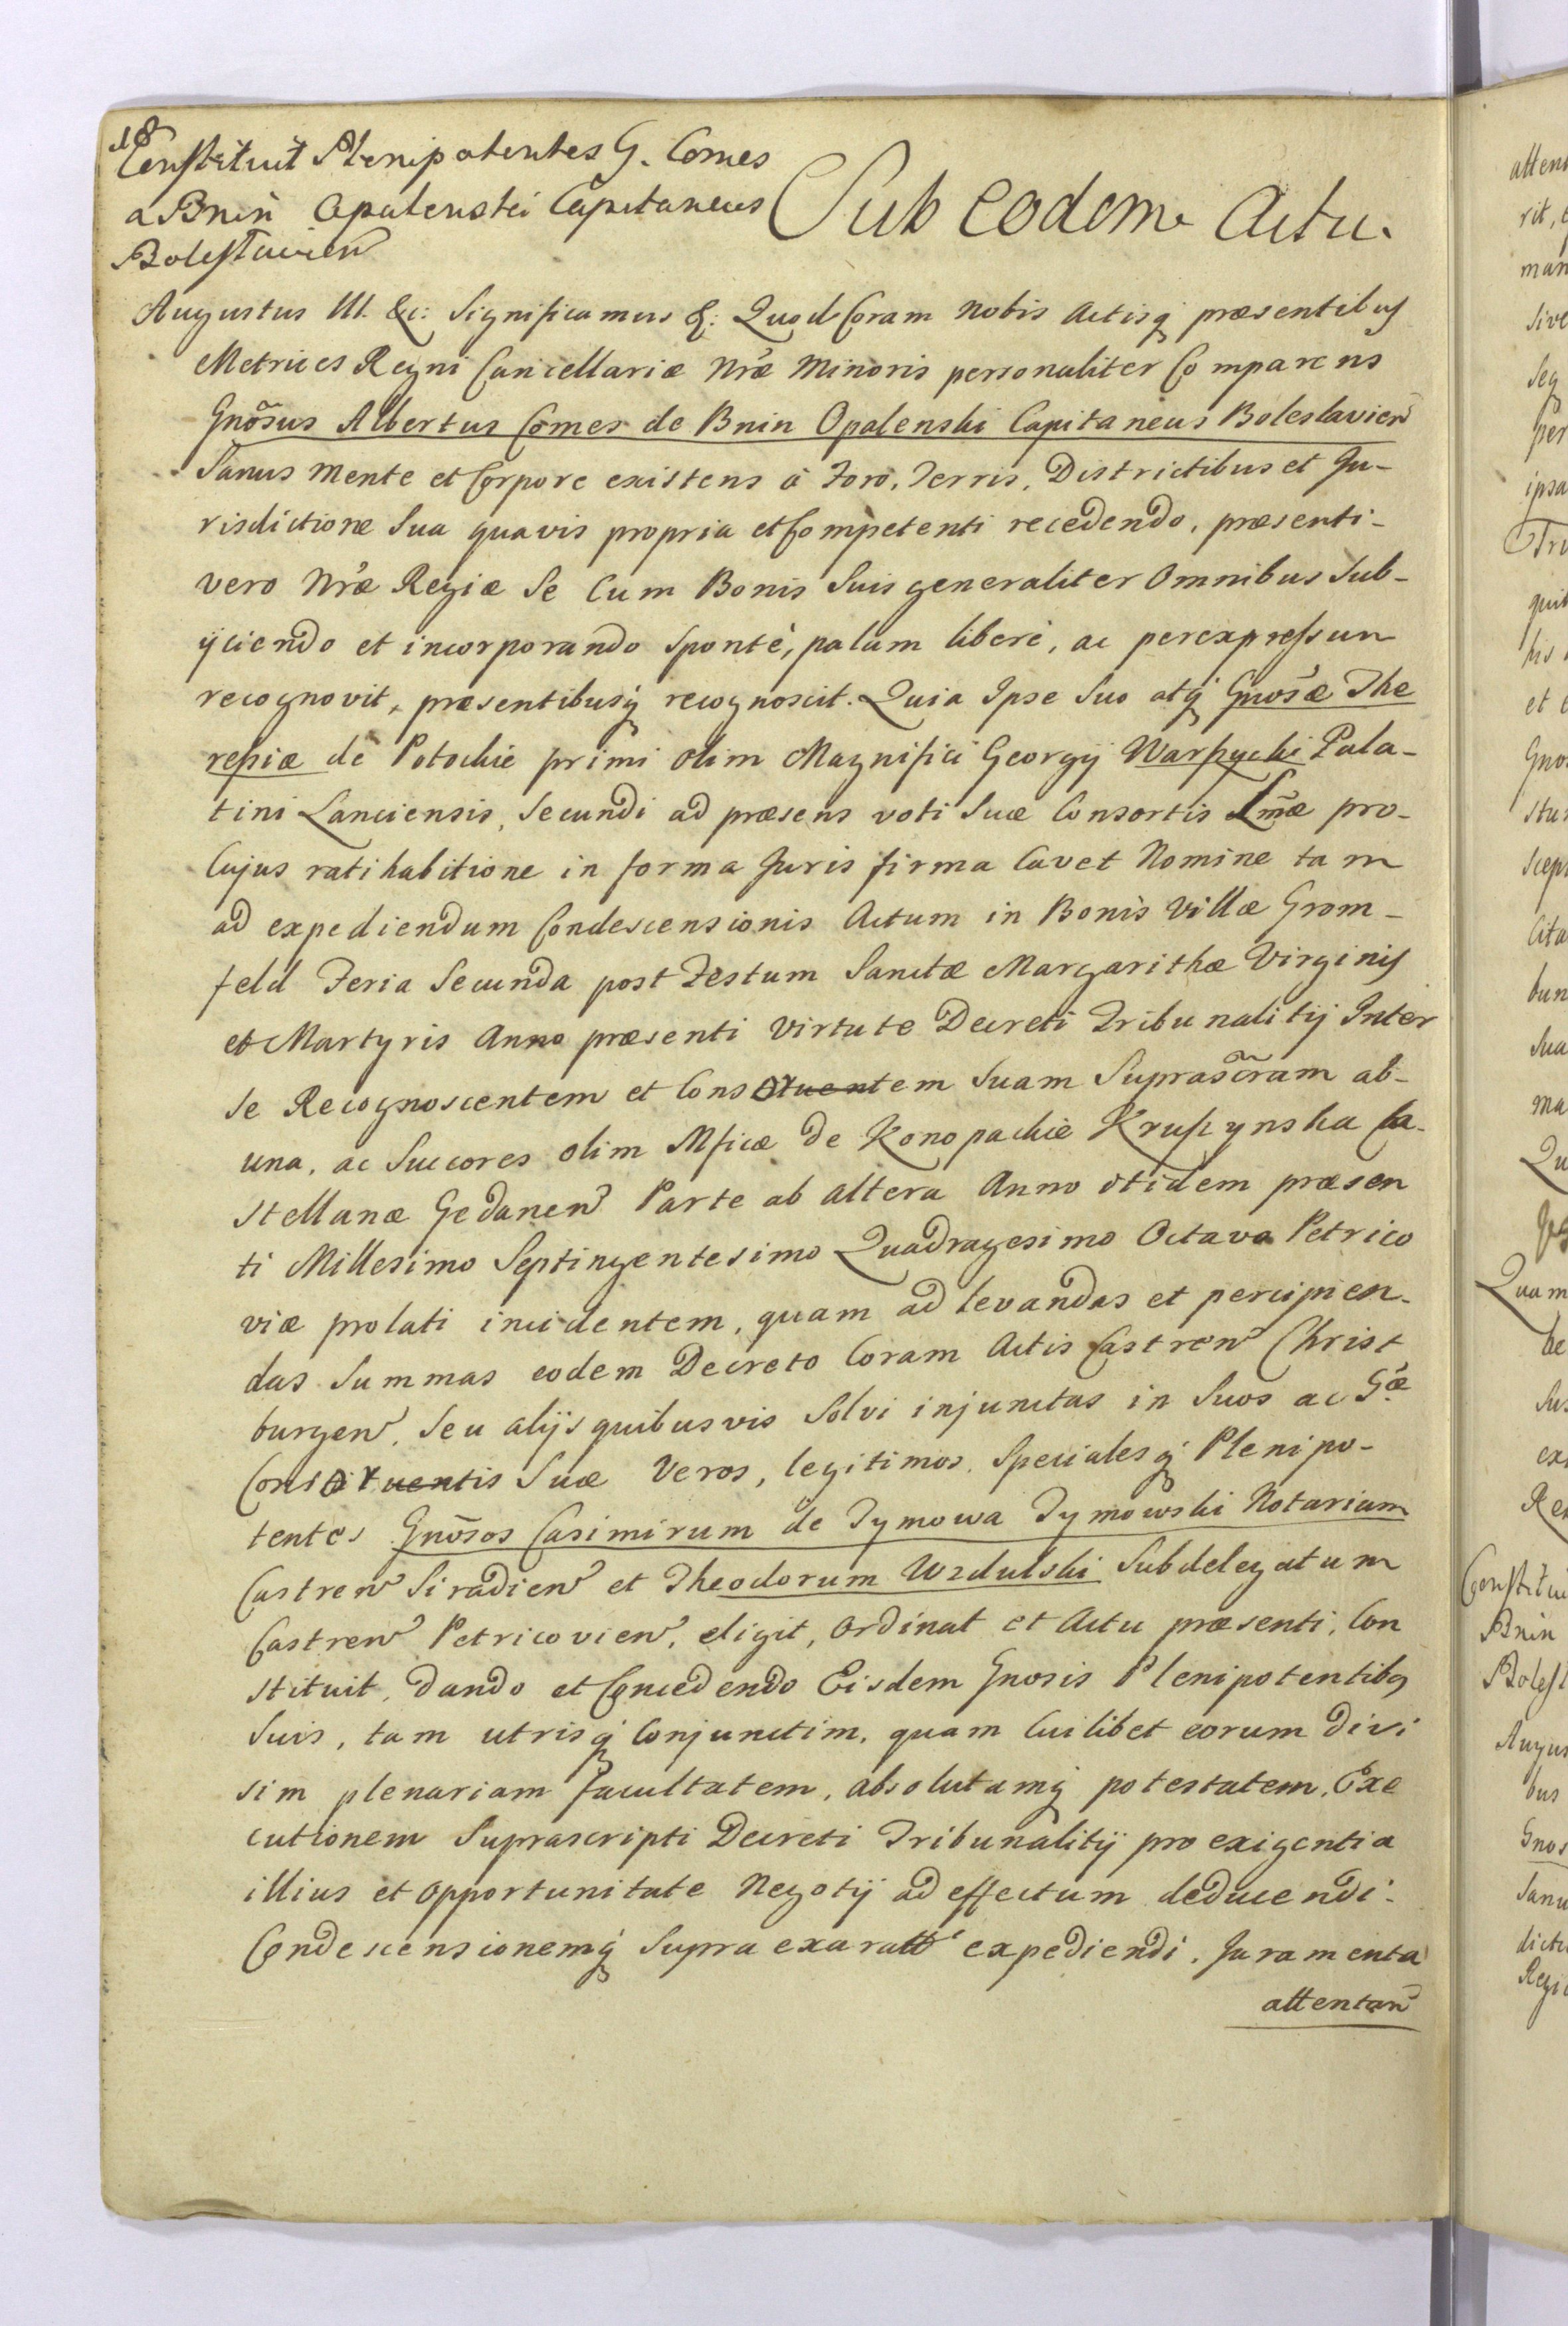 18
Constituit Plenipotentes G. Comes
a Bnin Opalenski Capitaneus
Boleslavien
Sub eodem Actu.
Augustus III. &c: Significamus &: Quod Coram Nobis Actisq præsentibus
Metrices Regni Cancellariæ Nræ Minoris personaliter Comparens
Gnosus Albertus Comes de Bnin Opalenski Capitaneus Boleslavien
Sanus Mente et Corpore existens à Foro, Terris, Districtibus et Ju-
risdictione Sua quavis propria et Competenti recedendo, præsenti-
vero Nræ Regiæ Se Cum Bonis Suis generaliter Omnibus Sub-
ijciendo et incorporando Spontè, palam liberè, ac per expressum
recognovit, præsentibusq recognoscit. Quia Ipse Suo atq Gnosæ The
resiæ de Potockie primi olim Magnifici Georgij Warszycki Pala-
tini Lanciensis, Secundi ad præsens voti Suæ Consortis Lmæ pro-
Cujus ratihabitione in forma Juris firma Cavet Nomine tam
ad expediendum Condescensionis Actum in Bonis Villæ Grom-
feld Feria Secunda post Festum Sanctæ Margarithæ Virginis
et Martyris Anno præsenti Virtute Decreti Tribunalitij Inter
Se Recognoscentem et Consortem Suam Suprascram ab-
una, ac Succores olim Mficæ de Konopackie Kruszynska Ca-
stellanæ Gedanen Parte ab altera Anno itidem præsen
ti Millesimo Septingentesimo Quadragesimo Octavo Petrico
viæ prolati incidentem, quam ad levandas et percipien-
das Summas eodem Decreto Coram Actis Castren Christ
burgen, Seu alijs quibusvis Solvi injunctas in Suos ac Gæ
Consortis Suæ Veros, legitimos, Specialesq Plenipo-
tentes Gnosos Casimirum de Tymowa Tymowski Notarium
Castren Siradien et Theodorum Wzdulski Subdelegatum
Castren Petricovien, eligit, Ordinat et Actu præsenti, Con
stituit, Dando et Concedendo Eisdem Gnosis Plenipotentibus
Suis, tam utrisq Conjunctim, quam Cuilibet eorum Divi
sim plenariam facultatem, absolutamq potestatem, Exe
cutionem Suprascripti Decreti Tribunalitij pro exigentia
illius et Opportunitate Negotij ad effectum deducendi-
Condescensionemq Supra exaratt expediendi, Juramenta
attentan